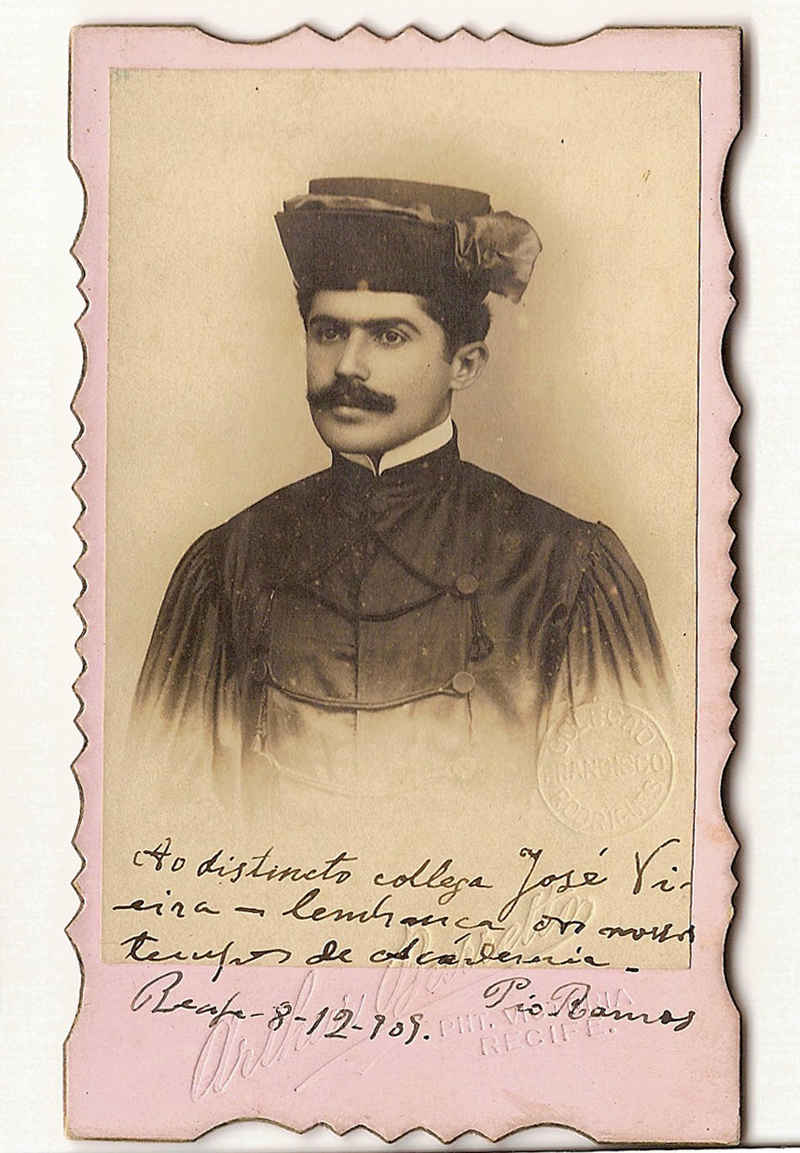 COLEÇÃO
FRANCISCO
RODRIGUES
Ao distincto collega José Vi-
eira - lembrança dos nossos
tempos de Academia -
Recife - 8-12-909. Pio Ramos
PHT.
RECIFE.